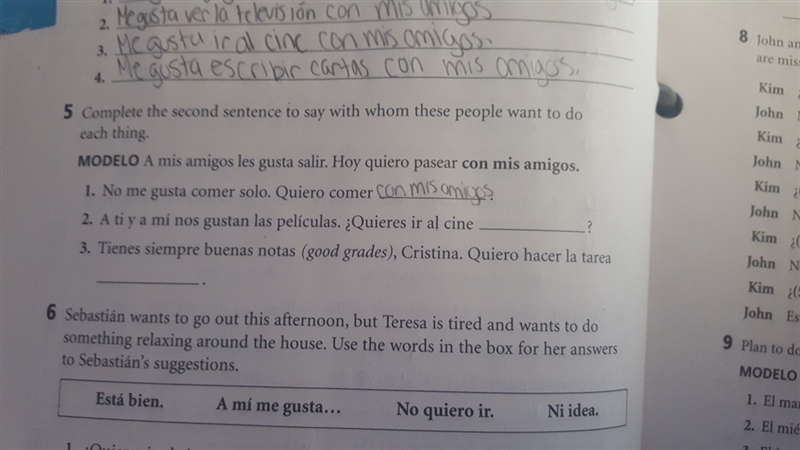 2. Me gusta ver la televisión con mis amigos
3. Me gusta ir al cine con mis amigos.
4. Me gusta escribir cartas con mis amigos.
5 Complete the second sentence to say with whom these people want to do
each thing.
MODELO A mis amigos les gusta salir. Hoy quiero pasear con mis amigos.
1. No me gusta comer solo. Quiero comer con mis amigos.
2. A ti y a mí nos gustan las películas. ¿Quieres ir al cine ____________?
3. Tienes siempre buenas notas (good grades), Cristina. Quiero hacer la tarea
____________.
6 Sebastián wants to go out this afternoon, but Teresa is tired and wants to do
something relaxing around the house. Use the words in the box for her answers
to Sebastián's suggestions.
Está bien. A mí me gusta… No quiero ir. Ni idea.
8 John an
are miss
Kim ¿
John N
Kim ¿
John N
Kim ¿(
John N
Kim ¿(
John N
Kim ¿(S
John Es
9 Plan to do
MODELO
1. El mar
2. El mié